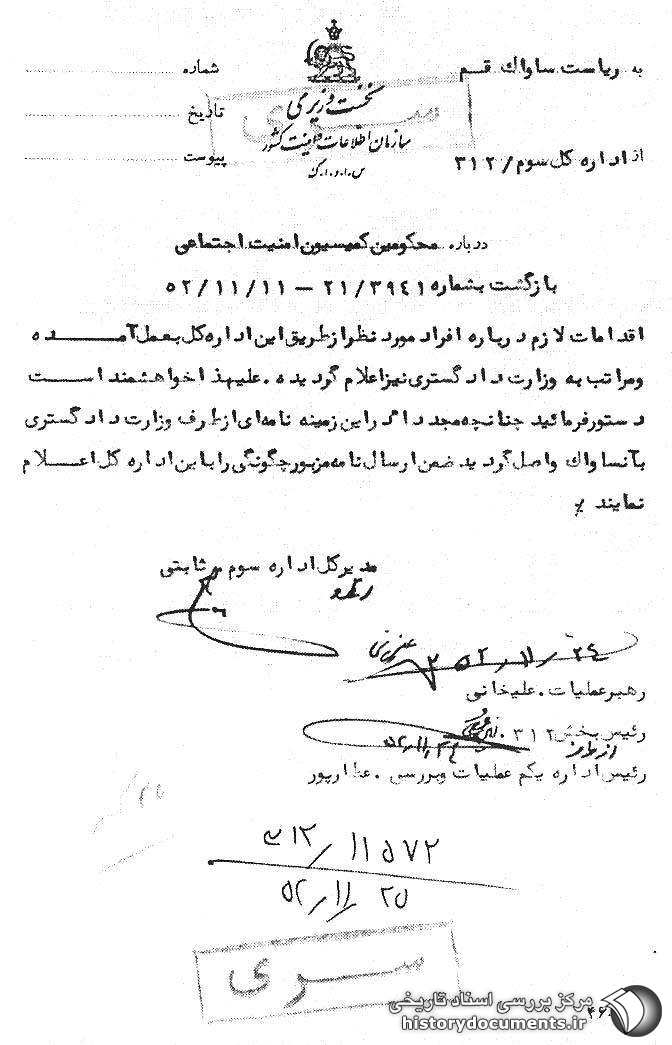 به ریاست ساواك قم
شماره
نخست وزیری
تاریخ
سری
سازمان اطلاعات و امنیت کشور
از اداره کل سوم / ۳۱۲
پیوست
س.ا.و.ا.ک
درباره محکومین کمیسیون امنیت اجتماعی
بازگشت بشماره ۲۱/۳۹۴۱ – ۵۲/۱۱/۱۱
اقدامات لازم درباره افراد مورد نظر از طریق این اداره کل بعمل آمده
ومراتب به وزارت دادگستری نیز اعلام گردیده . علیهذا خواهشمند است
دستور فرمائید چنانچه مجددا در این زمینه نامه ای از طرف وزارت دادگستری
بآنساواك واصل گردید ضمن ارسال نامه مزبور چگونگی را باین اداره کل اعلام
نمایند
مدیر کل اداره سوم ـ ثابتی
۵۲/۱۱/۲۴
رهبر عملیات . علیخانی
رئیس بخش ۳۱۲ .
از طرف
۵۲/۱۱/۲۴
رئیس اداره یکم عملیات وبررسی . عطارپور
۳۱۲/۱۱۵۷۲
۵۲/۱۱/۲۵
سری
مرکز بررسی اسناد تاریخی
historydocuments.ir